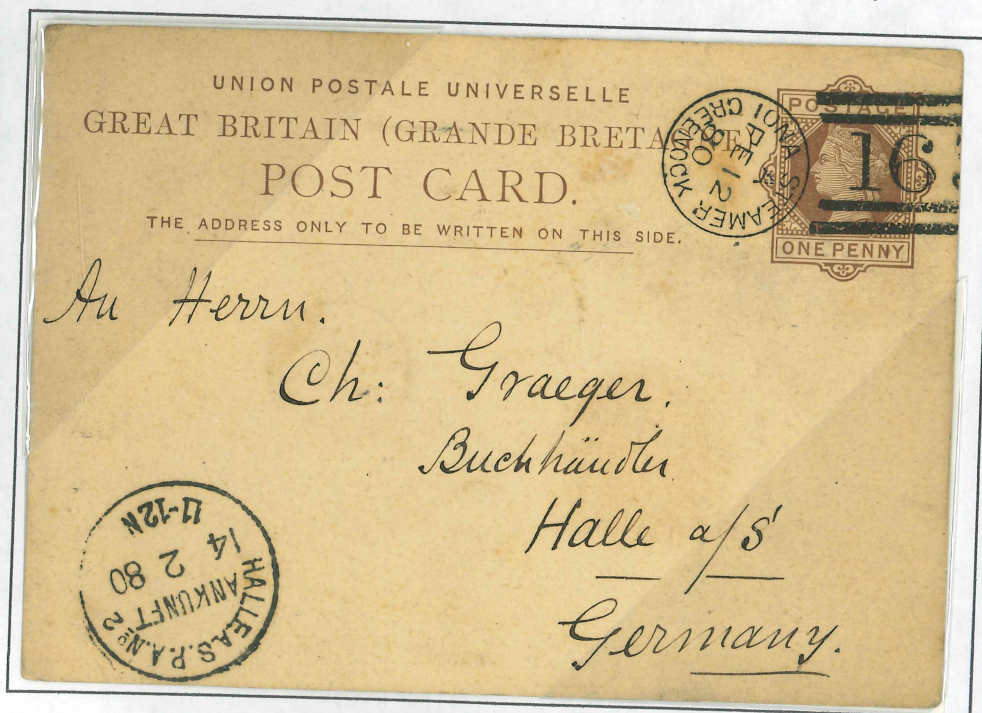 UNION POSTALE UNIVERSELLE
GREAT BRITAIN (GRANDE BRETAGNE)
POST CARD.
THE ADDRESS ONLY TO BE WRITTEN ON THIS SIDE.
POSTAGE
ONE PENNY
GREENOCK
STEAMER
FE 12
80
163
An Herrn.
Ch: Graeger.
Buchhändler
Halle a/S
Germany.
HALLE A.S. P.A. No 2
ANKUNFT
14 2 80
11-12N